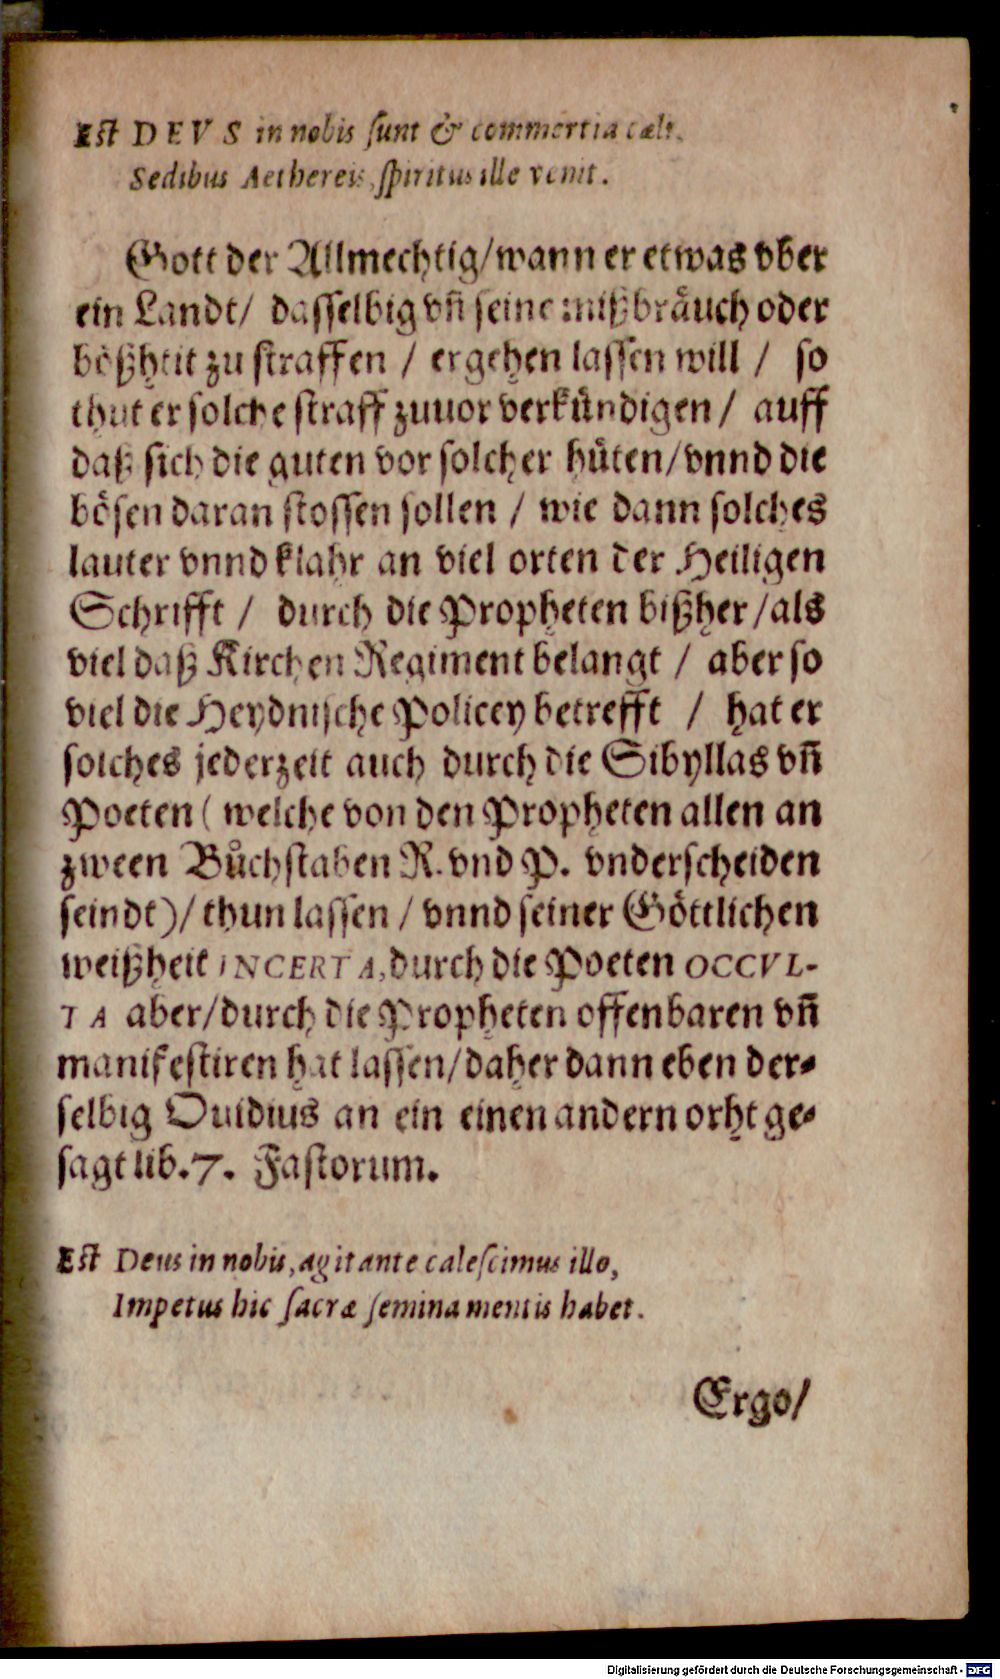 Est DEVS in nobis sunt & commertia cœli.
Sedibus Aethereis, spiritus ille venit.
Gott der Allmechtig/wann er etwas vber
ein Landt/ dasselbig vñ seine mißbräuch oder
bößheit zu straffen / ergehen lassen will / so
thut er solche straff zuuor verkündigen / auff
daß sich die guten vor solcher hüten/vnnd die
bösen daran stossen sollen / wie dann solches
lauter vnnd klahr an viel orten der Heiligen
Schrifft / durch die Propheten bißher/als
viel daß Kirchen Regiment belangt / aber so
viel die Heydnische Policey betrefft / hat er
solches jederzeit auch durch die Sibyllas vñ
Poeten ( welche von den Propheten allen an
zween Bůchstaben R. vnd P. vnderscheiden
seindt)/ thun lassen / vnnd seiner Göttlichen
weißheit INCERTA, durch die Poeten OCCVL-
TA aber/durch die Propheten offenbaren vñ
manifestiren hat lassen/daher dann eben der-
selbig Ouidius an ein einen andern orht ge-
sagt lib.7. Fastorum.
Est Deus in nobis, agitante calescimus illo,
Impetus hic sacræ semina mentis habet.
Ergo/
Digitalisierung gefördert durch die Deutsche Forschungsgemeinschaft - DFG